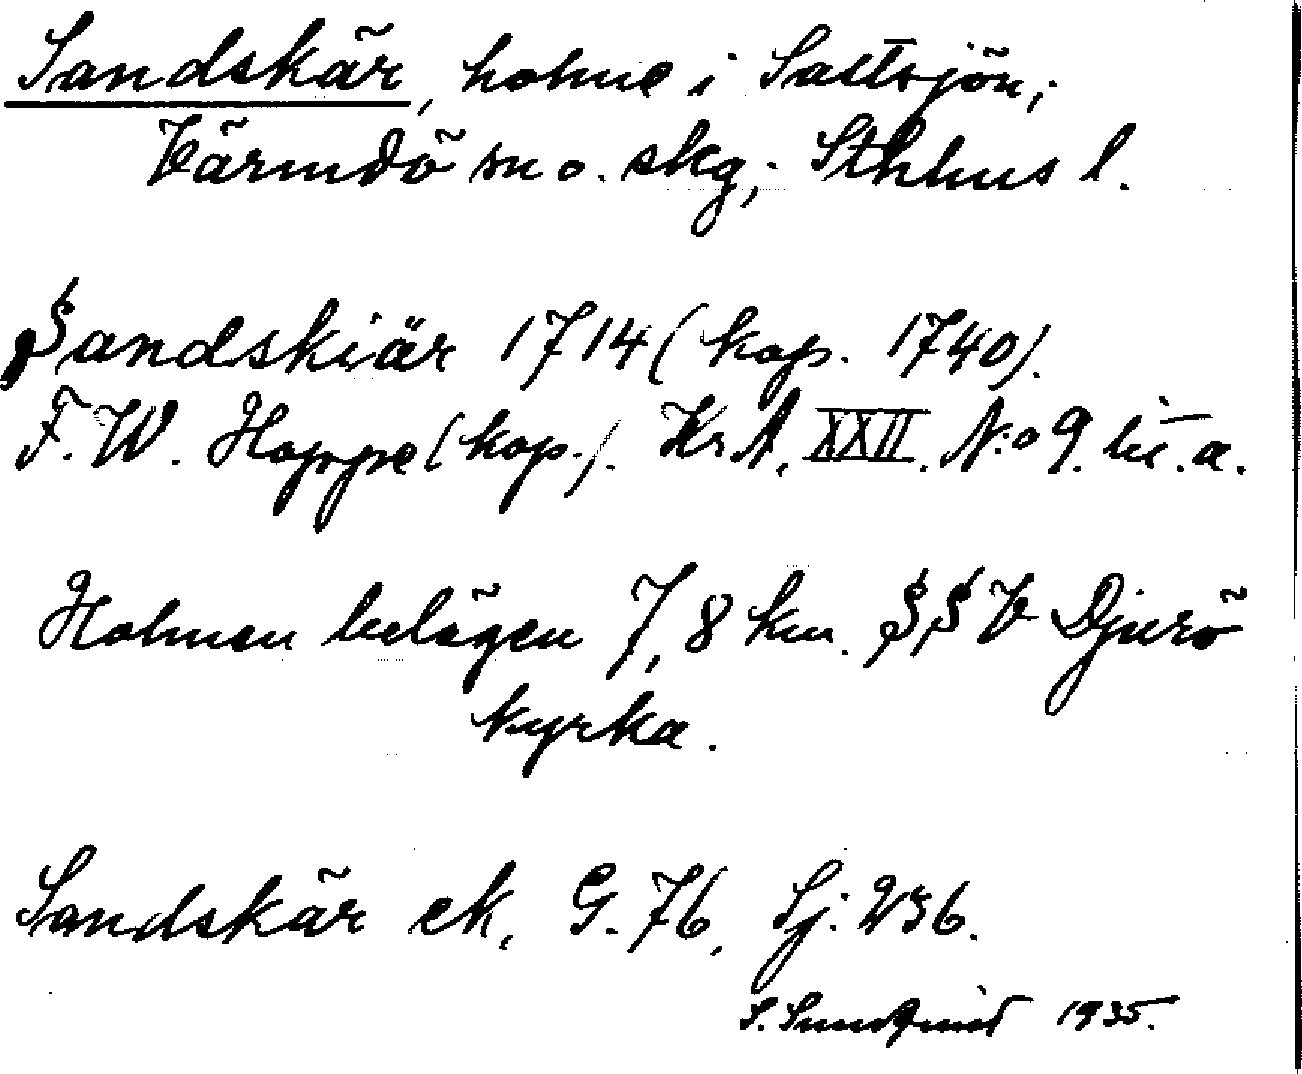 Sandskär, holme i Saltsjön;
Värmdö sn o. skg; Sthlms l.
Sandskiär 1714 (kop. 1740).
F. W. Hoppe (kop.). Kr A. XXII. N:o 9. lit. a.
Holmen belägen 7,8 km. SSV Djurö
kyrka.
Sandskär ek. G. 76, Sj: 236.
S. Sundqvist 1935.